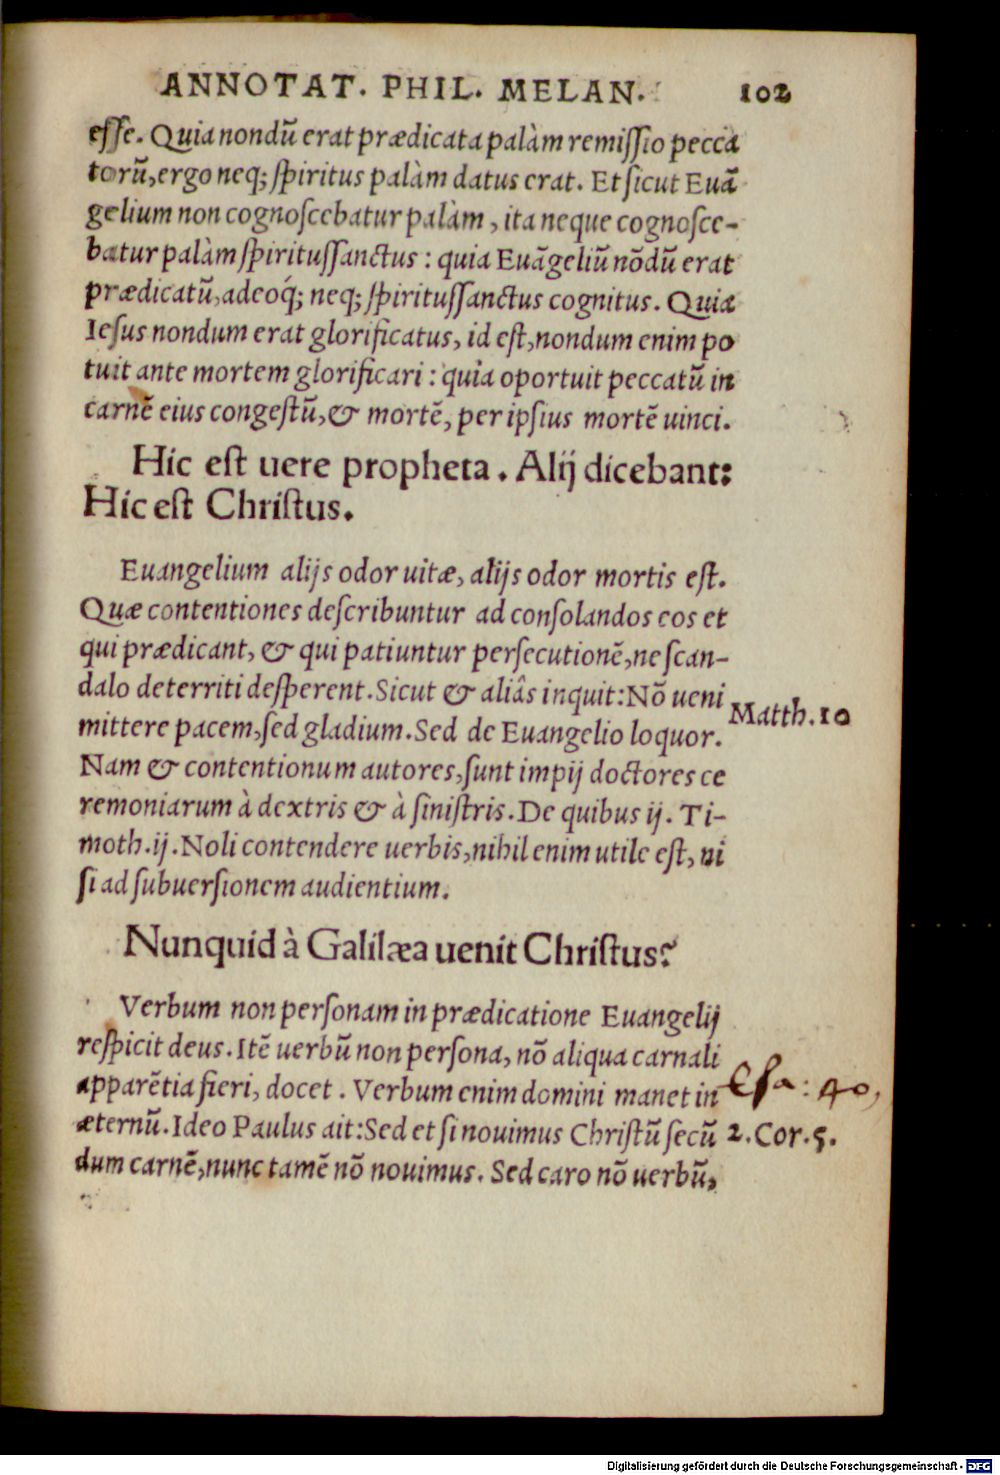 ANNOTAT. PHIL. MELAN. 102
eſſe. Quia nondũ erat prædicata palàm remiſſio pecca
torũ, ergo neq; ſpiritus palàm datus erat. Et ſicut Euã
gelium non cognoſcebatur palàm, ita neque cognoſce-
batur palàm ſpirituſſanctus: quia Euãgeliũ nõdũ erat
prædicatũ, adeoq́; neq; ſpirituſſanctus cognitus. Quia
Ieſus nondum erat glorificatus, id eſt, nondum enim po
tuit ante mortem glorificari: quia oportuit peccatũ in
carnẽ eius congeſtũ, & mortẽ, per ipſius mortẽ uinci.
Hic eſt uere propheta. Alij dicebant:
Hic eſt Chriſtus.
Euangelium alijs odor uitæ, alijs odor mortis eſt.
Quæ contentiones deſcribuntur ad conſolandos eos et
qui prædicant, & qui patiuntur perſecutionẽ, ne ſcan-
dalo deterriti deſperent. Sicut & aliâs inquit: Nõ ueni
Matth. 10
mittere pacem, ſed gladium. Sed de Euangelio loquor.
Nam & contentionum autores, ſunt impij doctores ce
remoniarum à dextris & à ſiniſtris. De quibus ij. Ti-
moth. ij. Noli contendere uerbis, nihil enim utile eſt, ni
ſi ad ſubuerſionem audientium.
Nunquid à Galilæa uenit Chriſtus?
Verbum non perſonam in prædicatione Euangelij
reſpicit deus. Itẽ uerbũ non perſona, nõ aliqua carnali
apparẽtia fieri, docet. Verbum enim domini manet in
Esa: 40,
æternũ. Ideo Paulus ait: Sed et ſi nouimus Chriſtũ ſecũ
2. Cor. 5.
dum carnẽ, nunc tamẽ nõ nouimus. Sed caro nõ uerbũ,
Digitalisierung gefördert durch die Deutsche Forschungsgemeinschaft - DFG